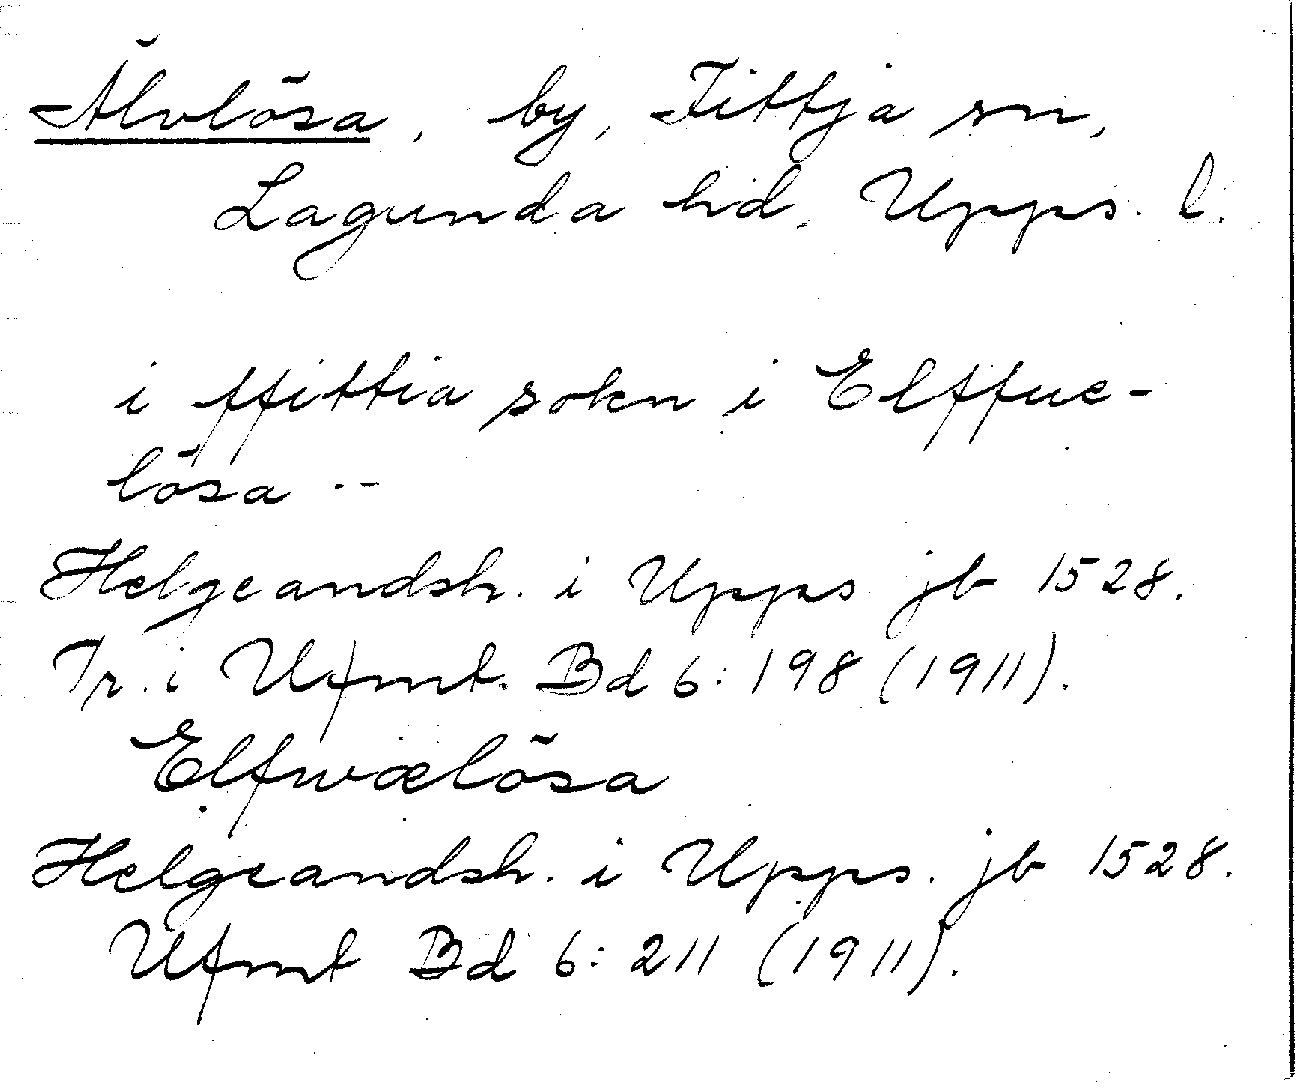 Älvlösa, by, Fittja sn,
Lagunda hd, Upps. l.
i ffittia sokn i Elffue-
lösa --
Helgeandsh. i Upps jb 1528.
Tr. i Ufmt. Bd 6: 198 (1911).
Elfwælösa
Helgeandsh. i Upps. jb 1528.
Ufmt Bd 6: 211 (1911).